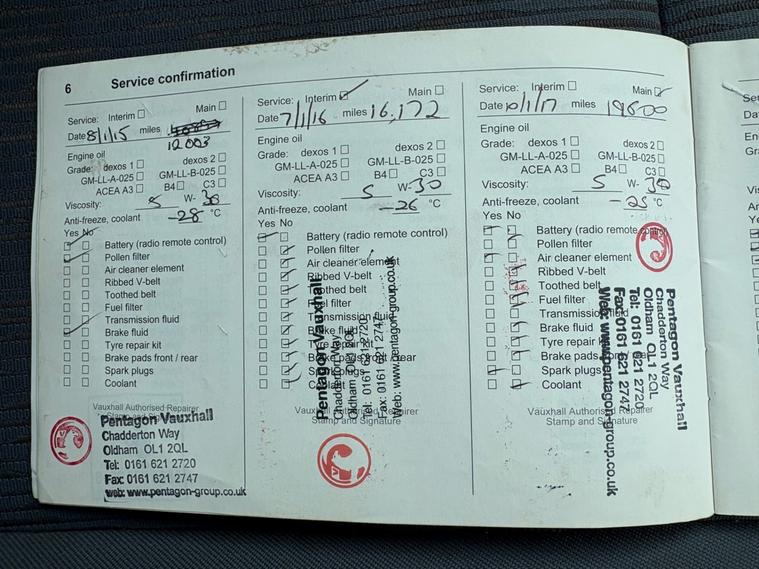 6 Service confirmation
Service: Interim Main
Date 8/1/15 miles
12003
Engine oil
Grade: dexos 1 dexos 2
GM-LL-A-025 GM-LL-B-025
ACEA A3 B4 C3
Viscosity: 5 W- 30
Anti-freeze, coolant -28 °C
Yes No
Battery (radio remote control)
Pollen filter
Air cleaner element
Ribbed V-belt
Toothed belt
Fuel filter
Transmission fluid
Brake fluid
Tyre repair kit
Brake pads front / rear
Spark plugs
Coolant
Vauxhall Authorised Repairer
Stamp and Signature
Pentagon Vauxhall
Chadderton Way
Oldham OL1 2QL
Tel: 0161 621 2720
Fax: 0161 621 2747
web: www.pentagon-group.co.uk
Service: Interim Main
Date 7/1/16 miles 16,172
Engine oil
Grade: dexos 1 dexos 2
GM-LL-A-025 GM-LL-B-025
ACEA A3 B4 C3
Viscosity: 5 W-30
Anti-freeze, coolant -26 °C
Yes No
Battery (radio remote control)
Pollen filter
Air cleaner element
Ribbed V-belt
Toothed belt
Fuel filter
Transmission fluid
Brake fluid
Tyre repair kit
Brake pads front / rear
Spark plugs
Coolant
Vauxhall Authorised Repairer
Stamp and Signature
Pentagon Vauxhall
Chadderton Way
Oldham OL1 2QL
Tel: 0161 621 2720
Fax: 0161 621 2747
Web: www.pentagon-group.co.uk
Service: Interim Main
Date 10/1/17 miles 19600
Engine oil
Grade: dexos 1 dexos 2
GM-LL-A-025 GM-LL-B-025
ACEA A3 B4 C3
Viscosity: 5 W- 30
Anti-freeze, coolant °C
Yes No
Battery (radio remote control)
Pollen filter
Air cleaner element
Ribbed V-belt
Toothed belt
Fuel filter
Transmission fluid
Brake fluid
Tyre repair kit
Brake pads front / rear
Spark plugs
Coolant
Vauxhall Authorised Repairer
Stamp and Signature
Pentagon Vauxhall
Chadderton Way
Oldham OL1 2QL
Tel: 0161 621 2720
Fax: 0161 621 2747
Web: www.pentagon-group.co.uk